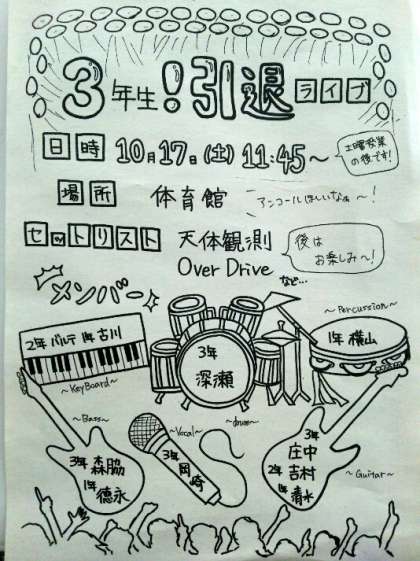 3年生!引退ライブ
日時 10月17日(土) 11:45〜
土曜授業の後です!
場所 体育館
アンコールほしいなぁ〜!
セットリスト 天体観測
Over Drive
など…
後はお楽しみ〜!
メンバー
2年 バルテ 1年 古川
〜KeyBoard〜
3年
深瀬
〜drum〜
〜Percussion〜
1年 横山
〜Bass〜
3年 森脇
1年 徳永
〜Vocal〜
3年 岡崎
3年 庄中
2年 吉村
1年 清水
〜Guitar〜